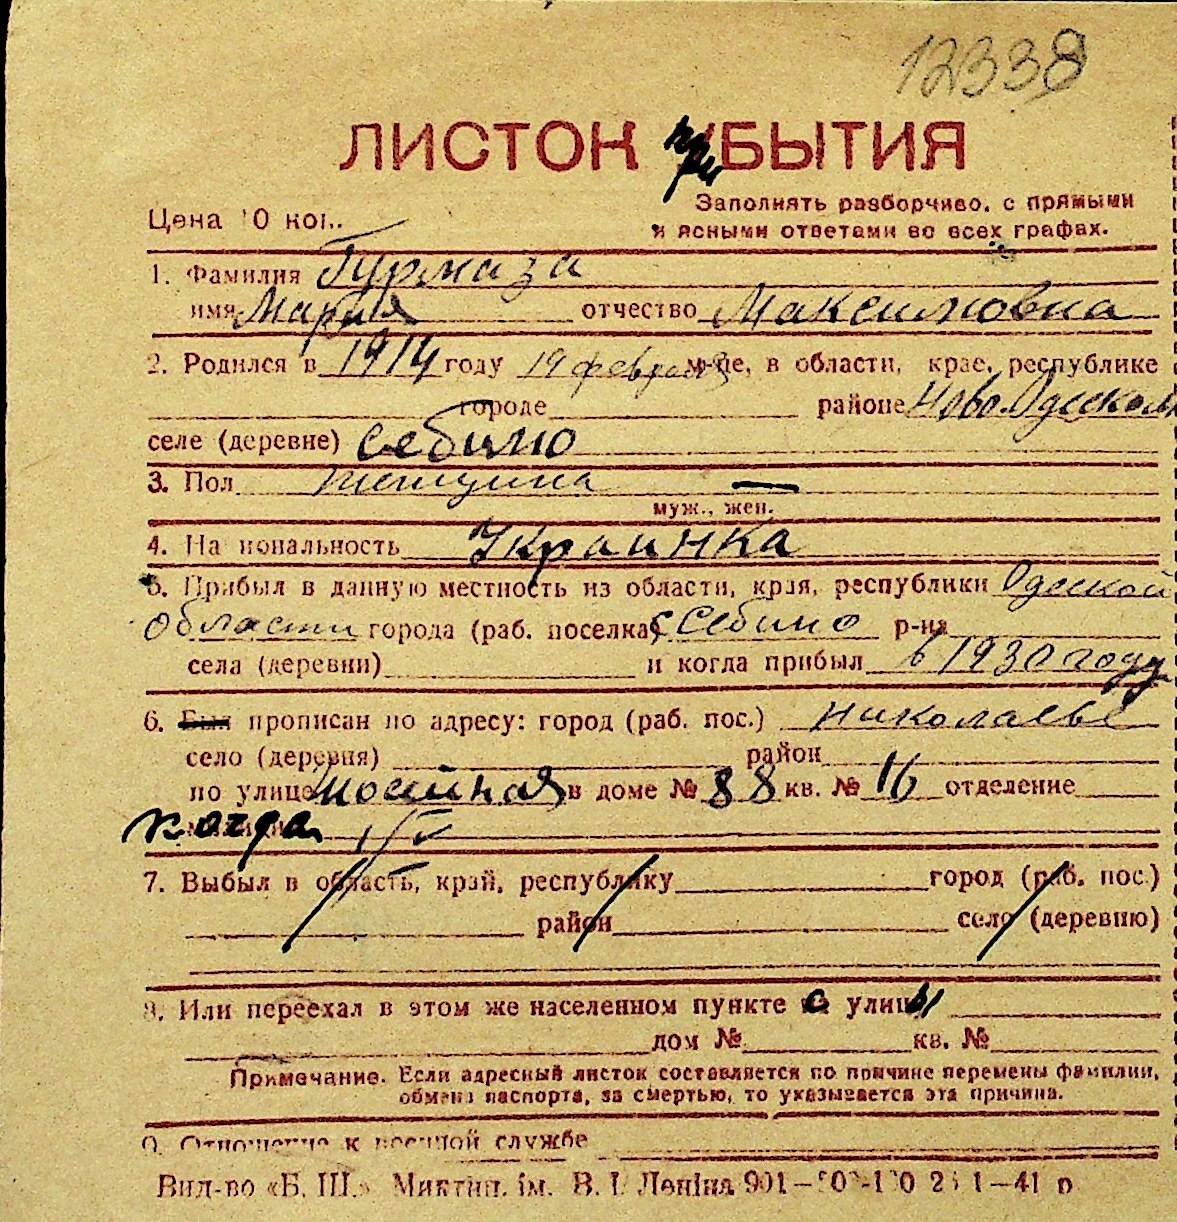 12338
ЛИСТОК при УБЫТИЯ
Цена 10 коп.
Заполнять разборчиво, с прямыми
и ясными ответами во всех графах.
1. Фамилия Гуржаза
имя Мария отчество Максимовна
2. Родился в 1914 году 19 февраля м-це, в области, крае, республике
городе районе Ново Одеском
селе (деревне) Себино
3. Пол женщина —
муж., жен.
4. На иональность Украинка
5. Прибыл в данную местность из области, края, республики Одеской
области города (раб. поселка) с Себино р-на
села (деревни) и когда прибыл в 1930 году
6. Был прописан по адресу: город (раб. пос.) Николаеве
село (деревня) район
по улице в доме № 88 кв. № 16 отделение
когда
7. Выбыл в область, край, республику город (раб. пос.)
район село (деревню)
8. Или переехал в этом же населенном пункте с улицы
дом № кв. №
Примечание. Если адресный листок составляется по причине перемены фамилии,
обмена паспорта, за смертью, то указывается эта причина.
9. Отношение к военной службе
Вид-во «Б. Ш.» Миктип. ім. В. І. Леніна 901—